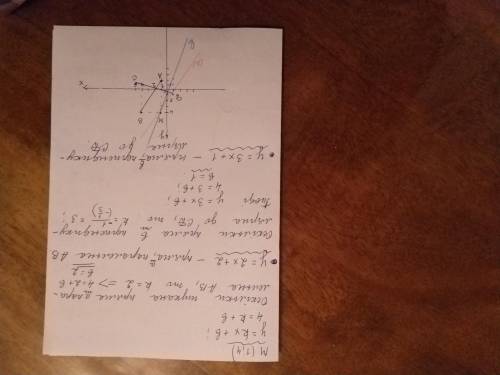 M (1,4)
y = kx + b;
4 = k + b
Оскільки шукана пряма пара-
лельна AB, то k = 2 => 4 = 2 + b
b = 2
y = 2x + 2 - пряма, паралельна AB
Оскільки пряма b перпендику-
лярна до CD, то k = -1/(-1/3) = 3;
Тоді y = 3x + b;
4 = 3 + b;
b = 1
y = 3x + 1 - пряма, перпендику-
лярна до CD.
y
M
B
A
C
D
x
a
b